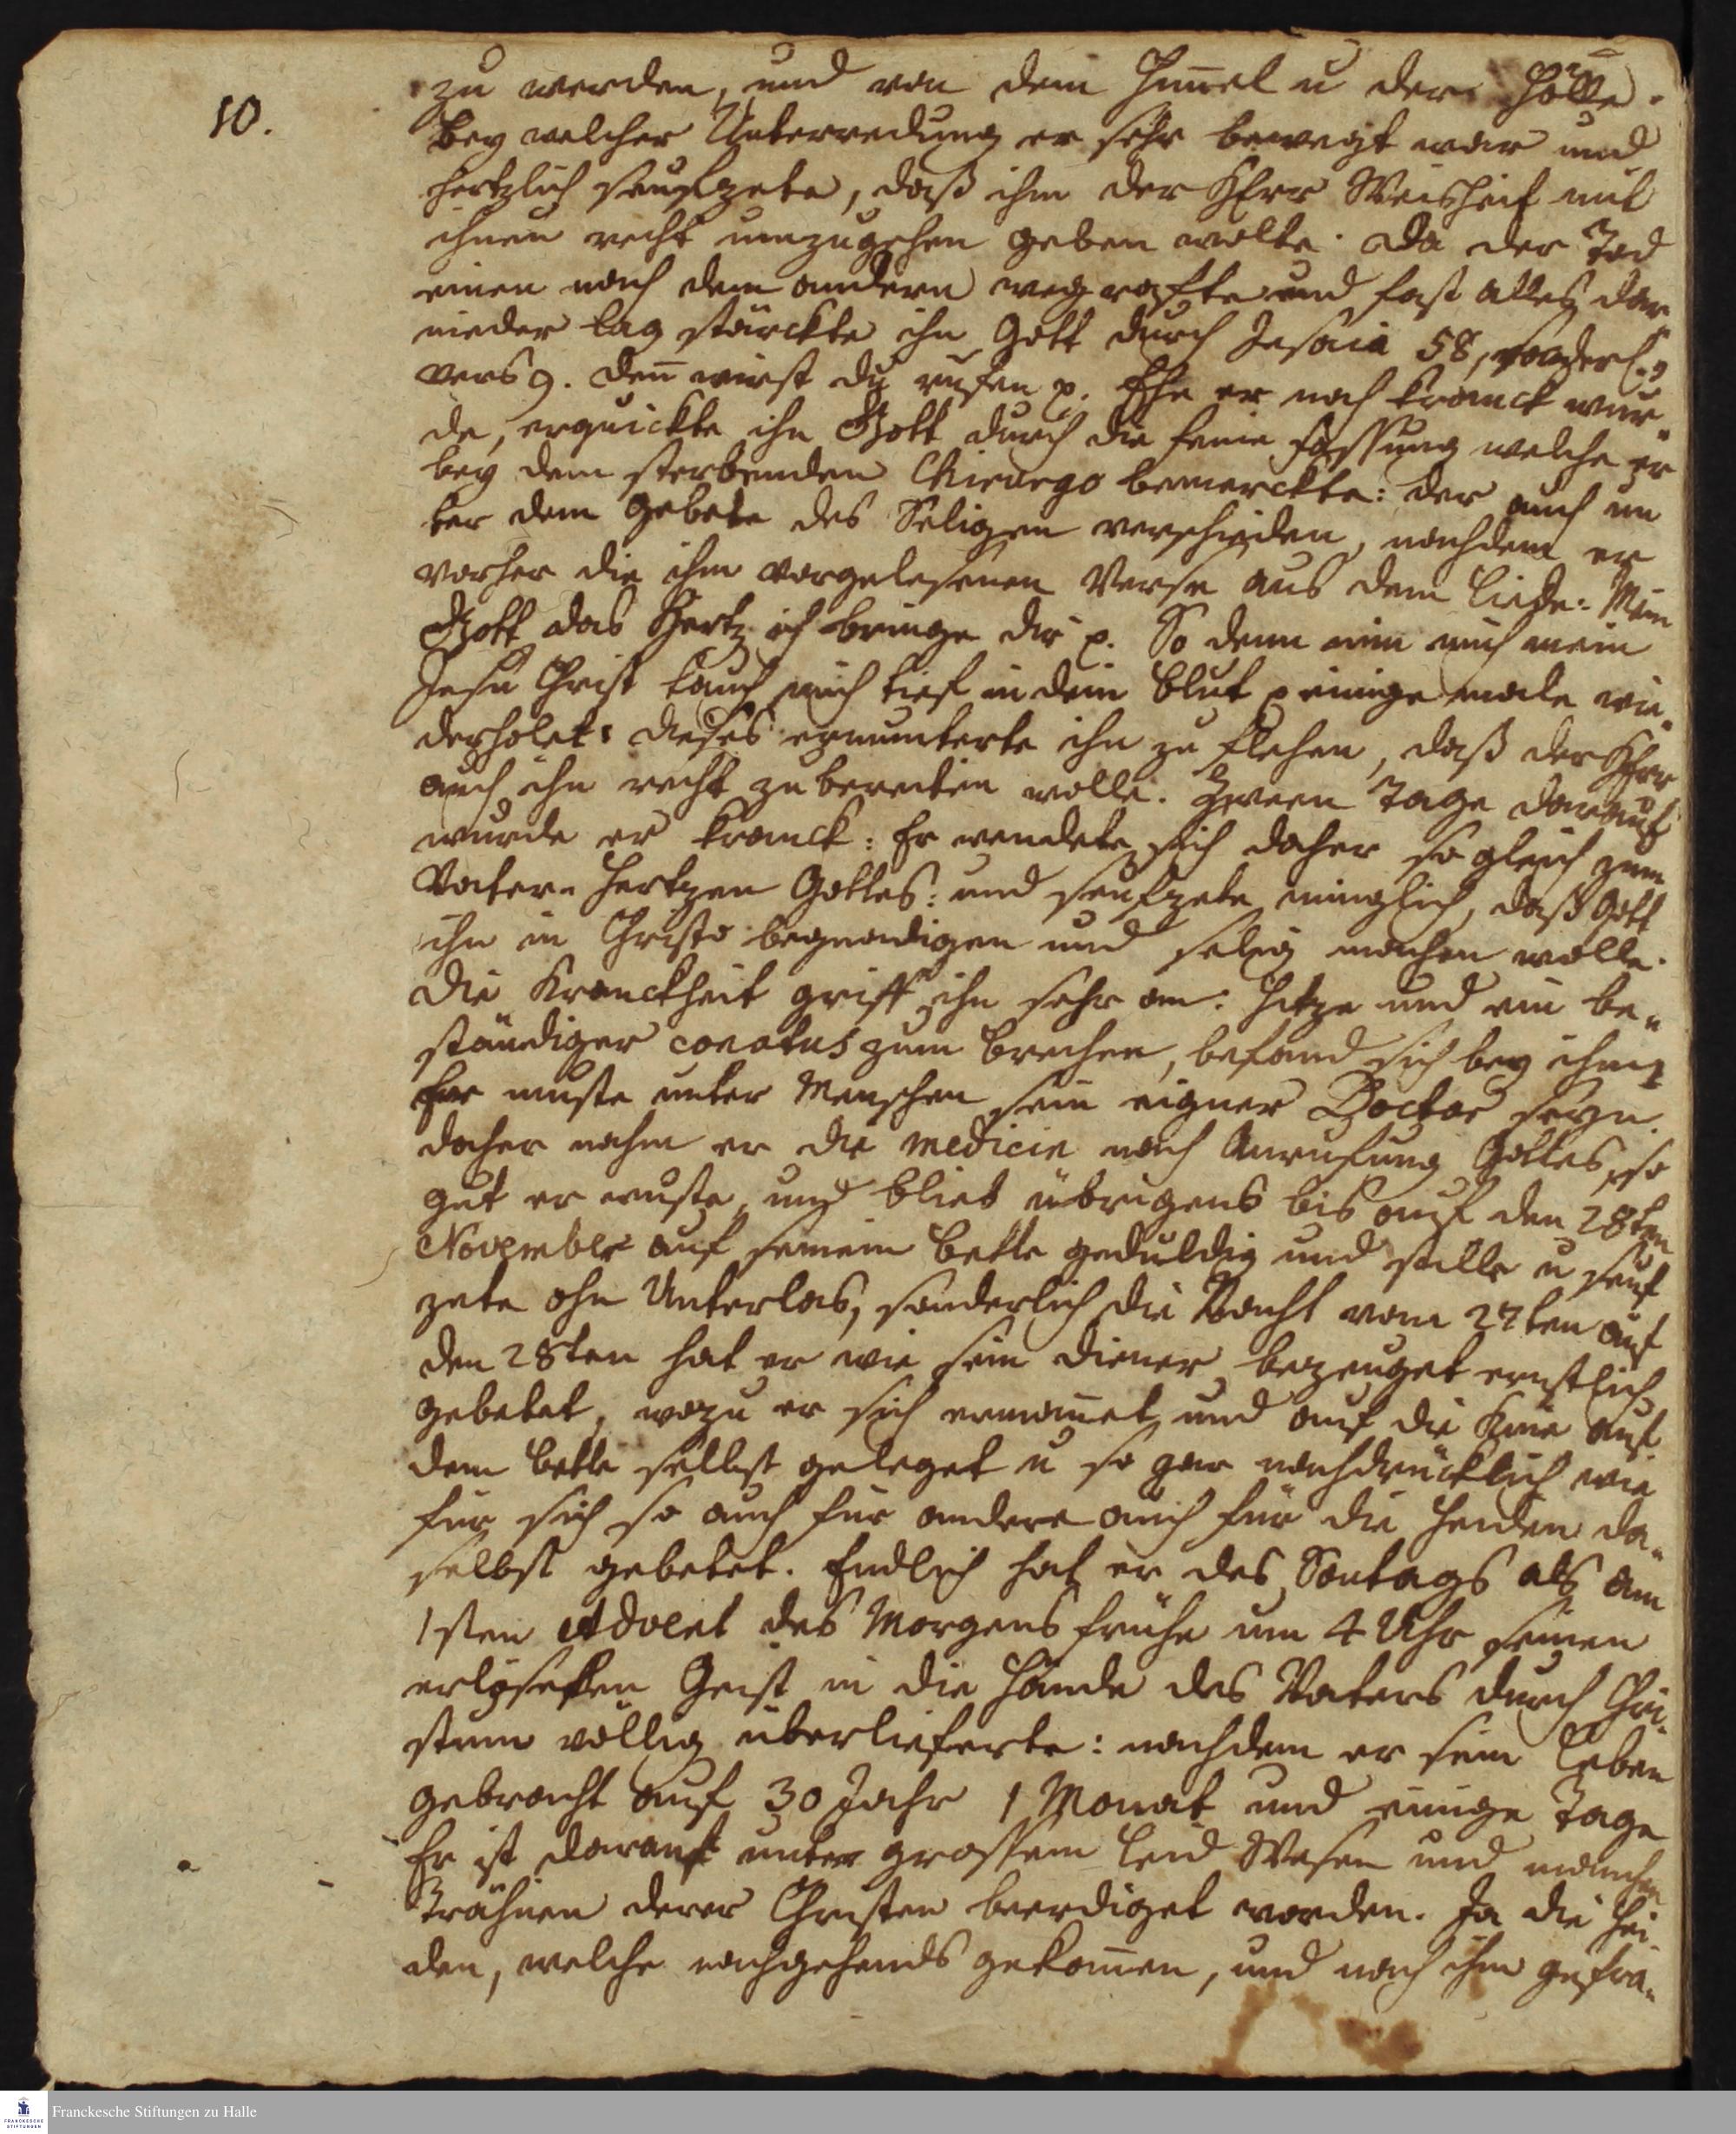 10.
zu werden, und von dem Him̄el u der Hölle.
Bey welcher Unterredung er sehr bewegt war und
hertzlich seufzete, daß ihm der HErr Weisheit mit
ihnen recht umzugehen geben wolte. Da der Tod
einen nach dem andern wegrafte und fast alles dar
nieder lag stärckte ihn Gott durch Jesaia 58, sonderl.
vers 9. Den̄ wirst du rufen p. Ehe er noch kranck wur-
de, erquickte ihn Gott durch die feine Fassung welche er
bey dem sterbenden Chirurgo bemerckte: der auch un
ter dem Gebete des Seligen verschieden, nachdem er
vorher die ihm vorgelesenen Verse aus dem Liede: Mein
Gott das Hertz ich bringe dir p. So denn nim mich mein
Jesu Christ tauch mich tief in dein Blut p einige male wie-
derholet: dieses ermunterte ihn zu flehen, daß der HErr
auch ihn recht zubereiten wolle. Zween Tage darauf
wurde er kranck: Er wendete sich daher so gleich zum
Vater-Hertzen Gottes: und seufzete inniglich, daß Gott
ihn in Christo begnadigen und selig machen wolle.
Die Kranckheit griff ihn sehr an: Hitze und ein be-
ständiger conatus zum Brechen, befand sich bey ihm:
Er muste unter Menschen sein eigner Doctor seyn.
daher nahm er die medicin nach Anrufung Gottes, so
gut er wuste, und blieb übrigens bis auf den 28ten
November auf seinem Bette geduldig und stille u seuf
zete ohn Unterlas, sonderlich die Nacht vom 27ten auf
den 28ten hat er wie sein Diener bezeuget ernstlich
gebetet, wozu er sich erman̄et und auf die Knie auf
dem Bette selbst geleget u so gar nachdrücklich wie
für sich so auch für andere auch für die Heiden da-
selbst gebetet. Endlich hat er des Sontags als am
1sten Advent des Morgens frühe um 4 Uhr seinen
erlöseten Geist in die Hände des Vaters durch Chri-
stum völlig überlieferte: nachdem er sein Leben
gebracht auf 30 Jahr 1 Monat und einige Tage
Er ist darauf unter grossem Leid Wesen und manchen
Trähnen derer Christen beerdiget worden. Ja die Hei-
den, welche nachgehends gekom̄en, und nach ihm gefra-
Franckesche Stiftungen zu Halle
FRANCKESCHE
STIFTUNGEN